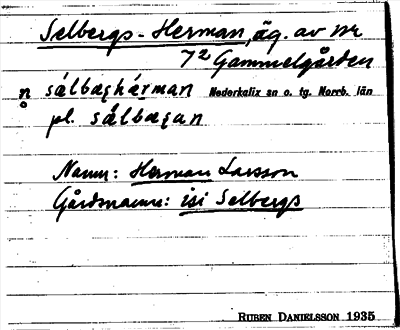 Selbergs-Herman, äg. av nr
7² Gammelgården
n sálbæʂhérman Nederkalix sn o. tg. Norrb. län
pl. sálbæʂan
Namn: Herman Larsson
Gårdsnamn: isi Selbergs
RUBEN DANIELSSON 1935